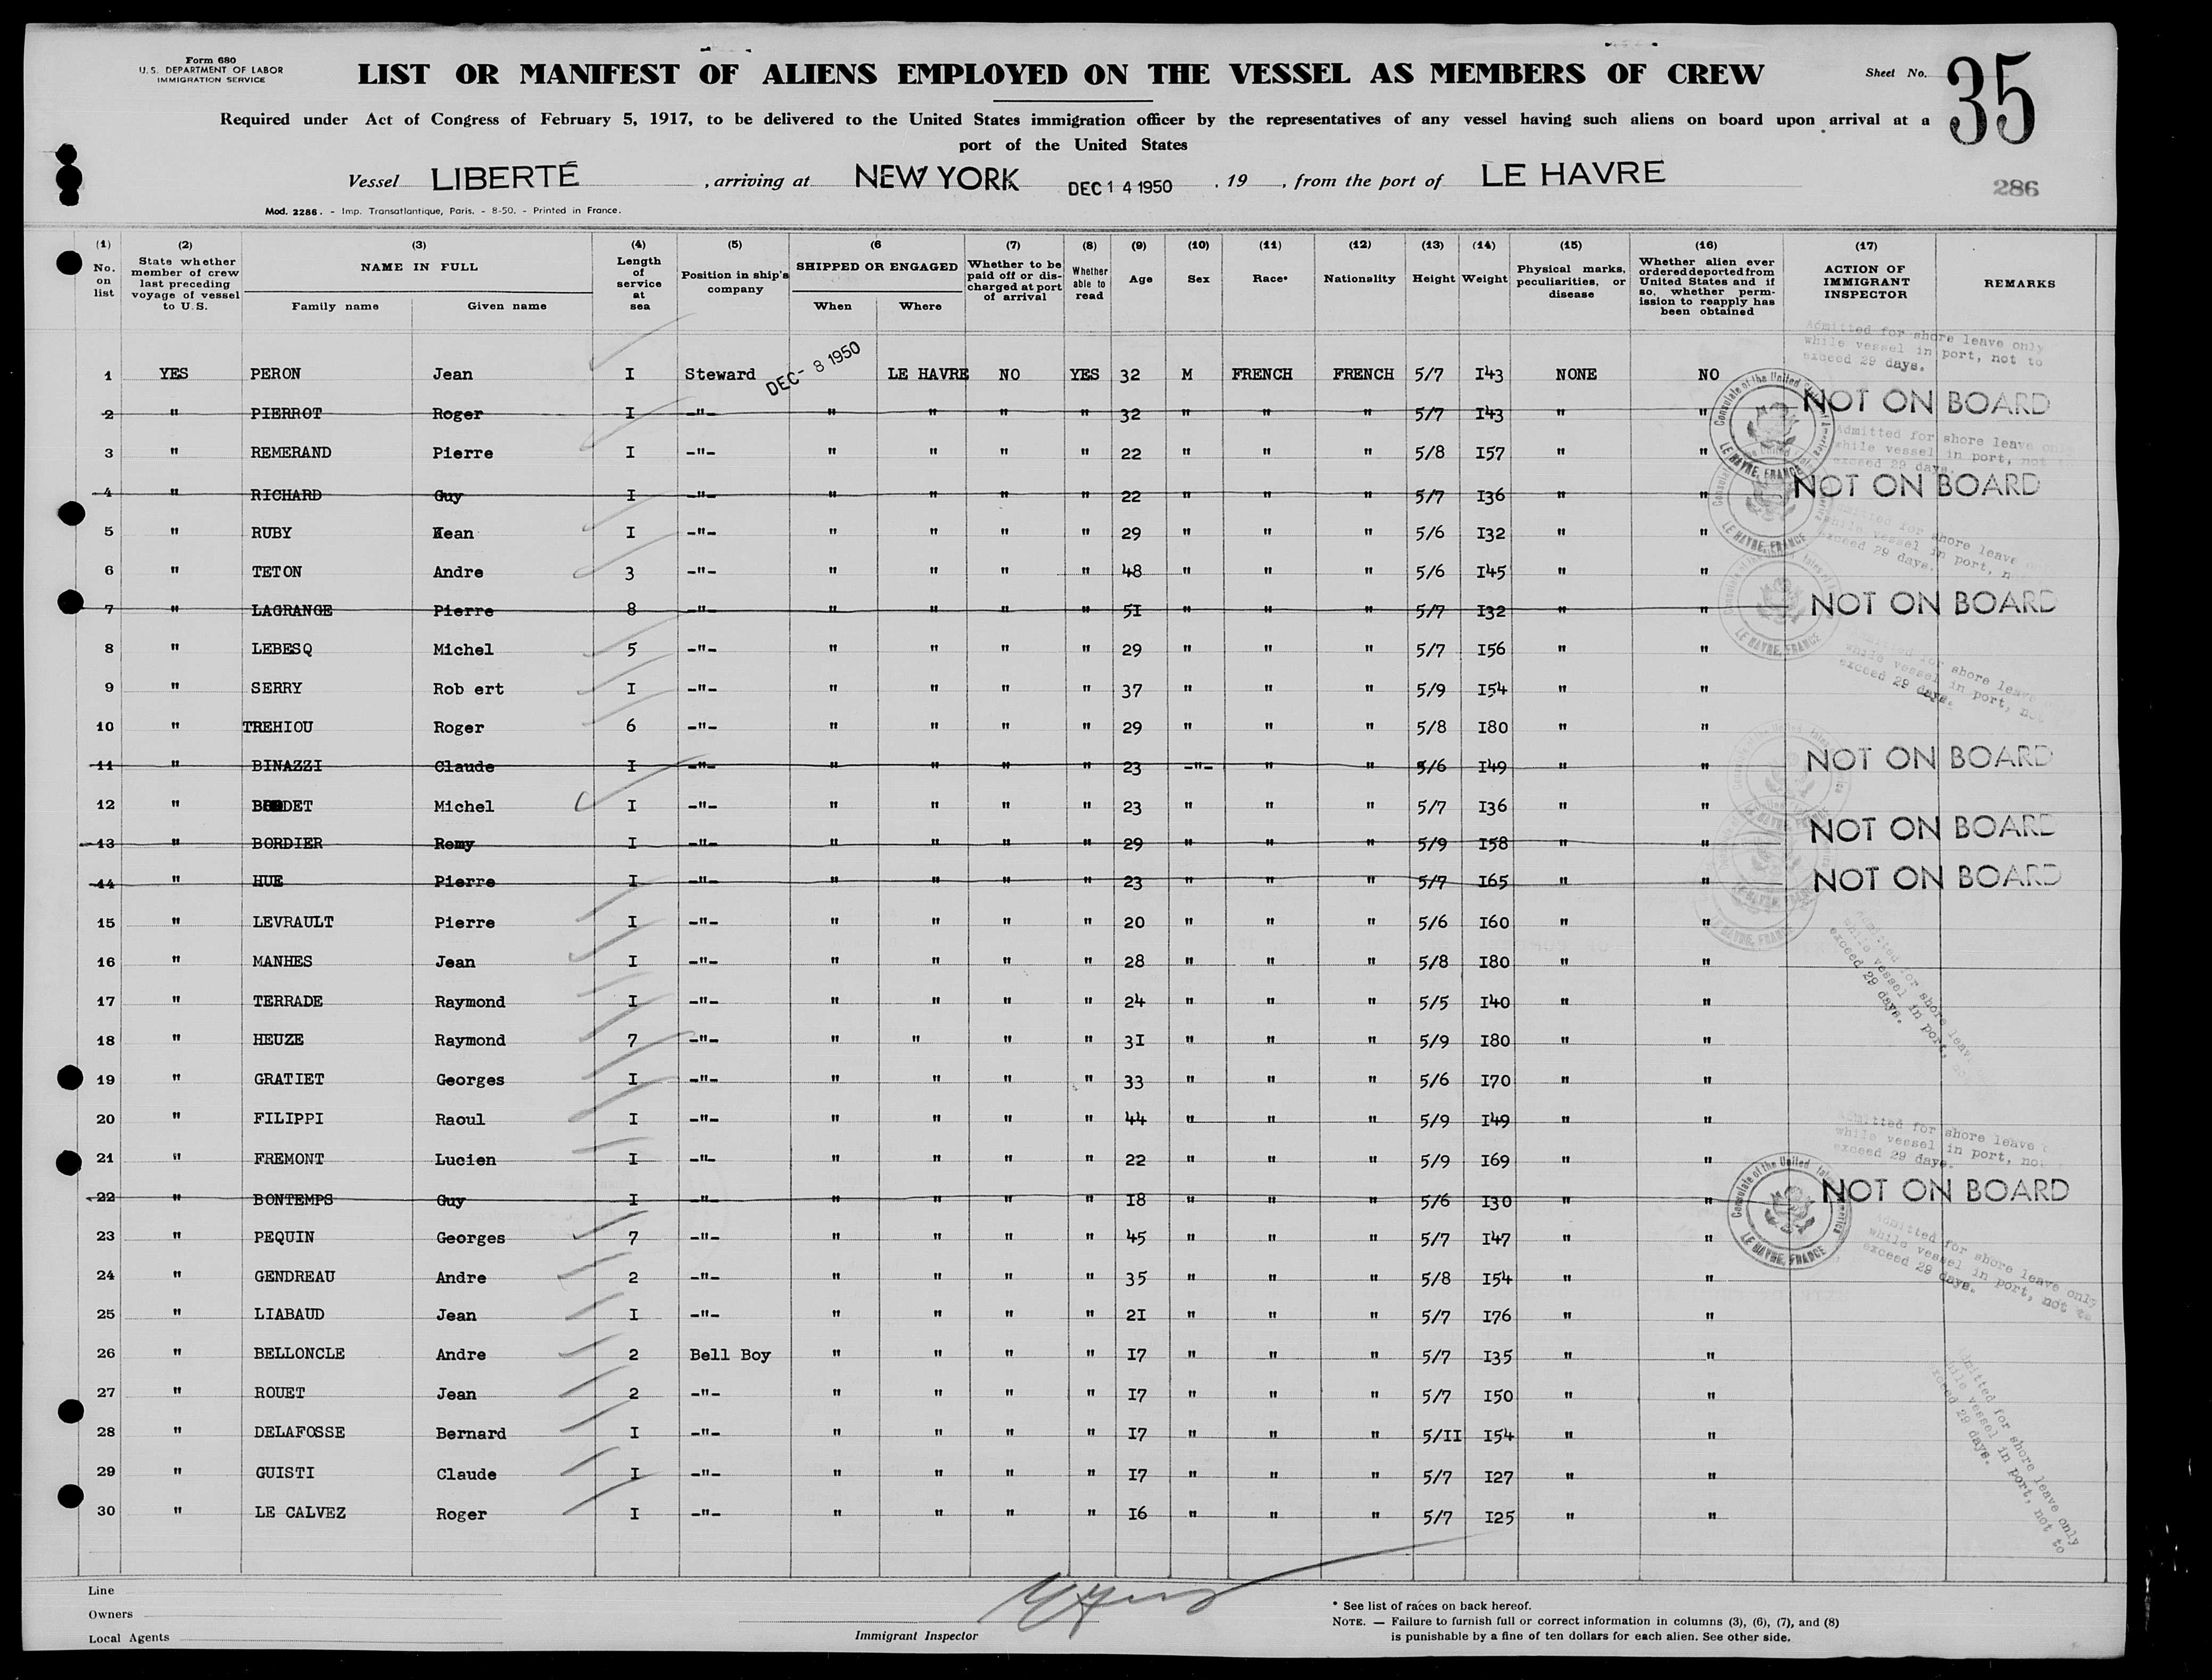 Form 680
U. S. DEPARTMENT OF LABOR
IMMIGRATION SERVICE
LIST OR MANIFEST OF ALIENS EMPLOYED ON THE VESSEL AS MEMBERS OF CREW
Sheet No. 35
Required under Act of Congress of February 5, 1917, to be delivered to the United States immigration officer by the representatives of any vessel having such aliens on board upon arrival at a
port of the United States
Vessel LIBERTÉ , arriving at NEW YORK DEC 14 1950 , 19 , from the port of LE HAVRE
286
Mod. 2286. - Imp. Transatlantique, Paris. - 8-50. - Printed in France.
(1) No. on list
(2) State whether member of crew last preceding voyage of vessel to U.S.
(3) NAME IN FULL Family name Given name
(4) Length of service at sea
(5) Position in ship's company
(6 SHIPPED OR ENGAGED When Where
(7) Whether to be paid off or discharged at port of arrival
(8) Whether able to read
(9) Age
(10) Sex
(11) Race*
(12) Nationality
(13) Height
(14) Weight
(15) Physical marks, peculiarities, or disease
(16) Whether alien ever ordered deported from United States and if so, whether permission to reapply has been obtained
(17) ACTION OF IMMIGRANT INSPECTOR
REMARKS
Admitted for shore leave only
while vessel in port, not to
exceed 29 days.
1 YES PERON Jean I Steward DEC - 8 1950 LE HAVRE NO YES 32 M FRENCH FRENCH 5/7 I43 NONE NO
2 " PIERROT Roger I -"- " " " " 32 " " " 5/7 I43 " " NOT ON BOARD
3 " REMERAND Pierre I -"- " " " " 22 " " " 5/8 I57 " "
4 " RICHARD Guy I -"- " " " " 22 " " " 5/7 I36 " " NOT ON BOARD
5 " RUBY Kean I -"- " " " " 29 " " " 5/6 I32 " "
6 " TETON Andre 3 -"- " " " " 48 " " " 5/6 I45 " "
7 " LAGRANGE Pierre 8 -"- " " " " 5I " " " 5/7 I32 " " NOT ON BOARD
8 " LEBESQ Michel 5 -"- " " " " 29 " " " 5/7 I56 " "
9 " SERRY Rob ert I -"- " " " " 37 " " " 5/9 I54 " "
10 " TREHIOU Roger 6 -"- " " " " 29 " " " 5/8 I80 " "
11 " BINAZZI Claude I -"- " " " " 23 -"- " " 5/6 I49 " " NOT ON BOARD
12 " Michel I -"- " " " " 23 " " " 5/7 I36 " "
13 " BORDIER Remy I -"- " " " " 29 " " " 5/9 I58 " " NOT ON BOARD
14 " HUE Pierre I -"- " " " " 23 " " " 5/7 I65 " " NOT ON BOARD
15 " LEVRAULT Pierre I -"- " " " " 20 " " " 5/6 I60 " "
16 " MANHES Jean I -"- " " " " 28 " " " 5/8 I80 " "
17 " TERRADE Raymond I -"- " " " " 24 " " " 5/5 I40 " "
18 " HEUZE Raymond 7 -"- " " " " 3I " " " 5/9 I80 " "
19 " GRATIET Georges I -"- " " " " 33 " " " 5/6 I70 " "
20 " FILIPPI Raoul I -"- " " " " 44 " " " 5/9 I49 " "
21 " FREMONT Lucien I -"- " " " " 22 " " " 5/9 I69 " "
22 " BONTEMPS Guy I -"- " " " " I8 " " " 5/6 I30 " " NOT ON BOARD
23 " PEQUIN Georges 7 -"- " " " " 45 " " " 5/7 I47 " "
24 " GENDREAU Andre 2 -"- " " " " 35 " " " 5/8 I54 " "
25 " LIABAUD Jean I -"- " " " " 2I " " " 5/7 I76 " "
26 " BELLONCLE Andre 2 Bell Boy " " " " I7 " " " 5/7 I35 " "
27 " ROUET Jean 2 -"- " " " " I7 " " " 5/7 I50 " "
28 " DELAFOSSE Bernard I -"- " " " " I7 " " " 5/II I54 " "
29 " GUISTI Claude I -"- " " " " I7 " " " 5/7 I27 " "
30 " LE CALVEZ Roger I -"- " " " " I6 " " " 5/7 I25 " "
Consulate of the United States of America
LE HAVRE, FRANCE
Admitted for shore leave only
while vessel in port, not to
exceed 29 days.
Line
Owners
Local Agents
Immigrant Inspector
* See list of races on back hereof.
NOTE. — Failure to furnish full or correct information in columns (3), (6), (7), and (8)
is punishable by a fine of ten dollars for each alien. See other side.